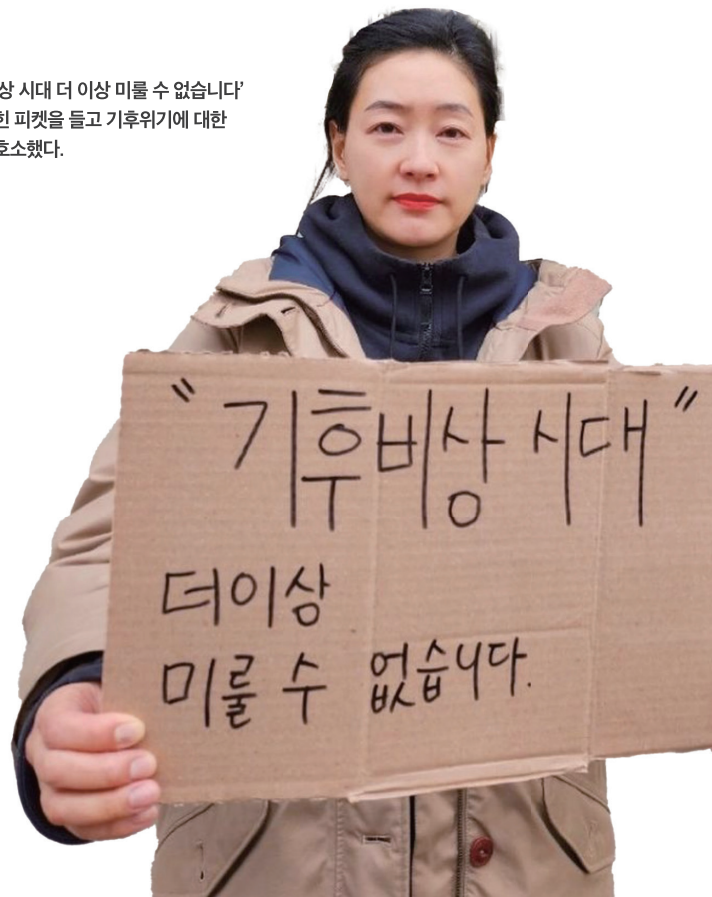 상 시대 더 이상 미룰 수 없습니다’
힌 피켓을 들고 기후위기에 대한
호소했다.
"기후비상 시대"
더이상
미룰 수 없습니다.